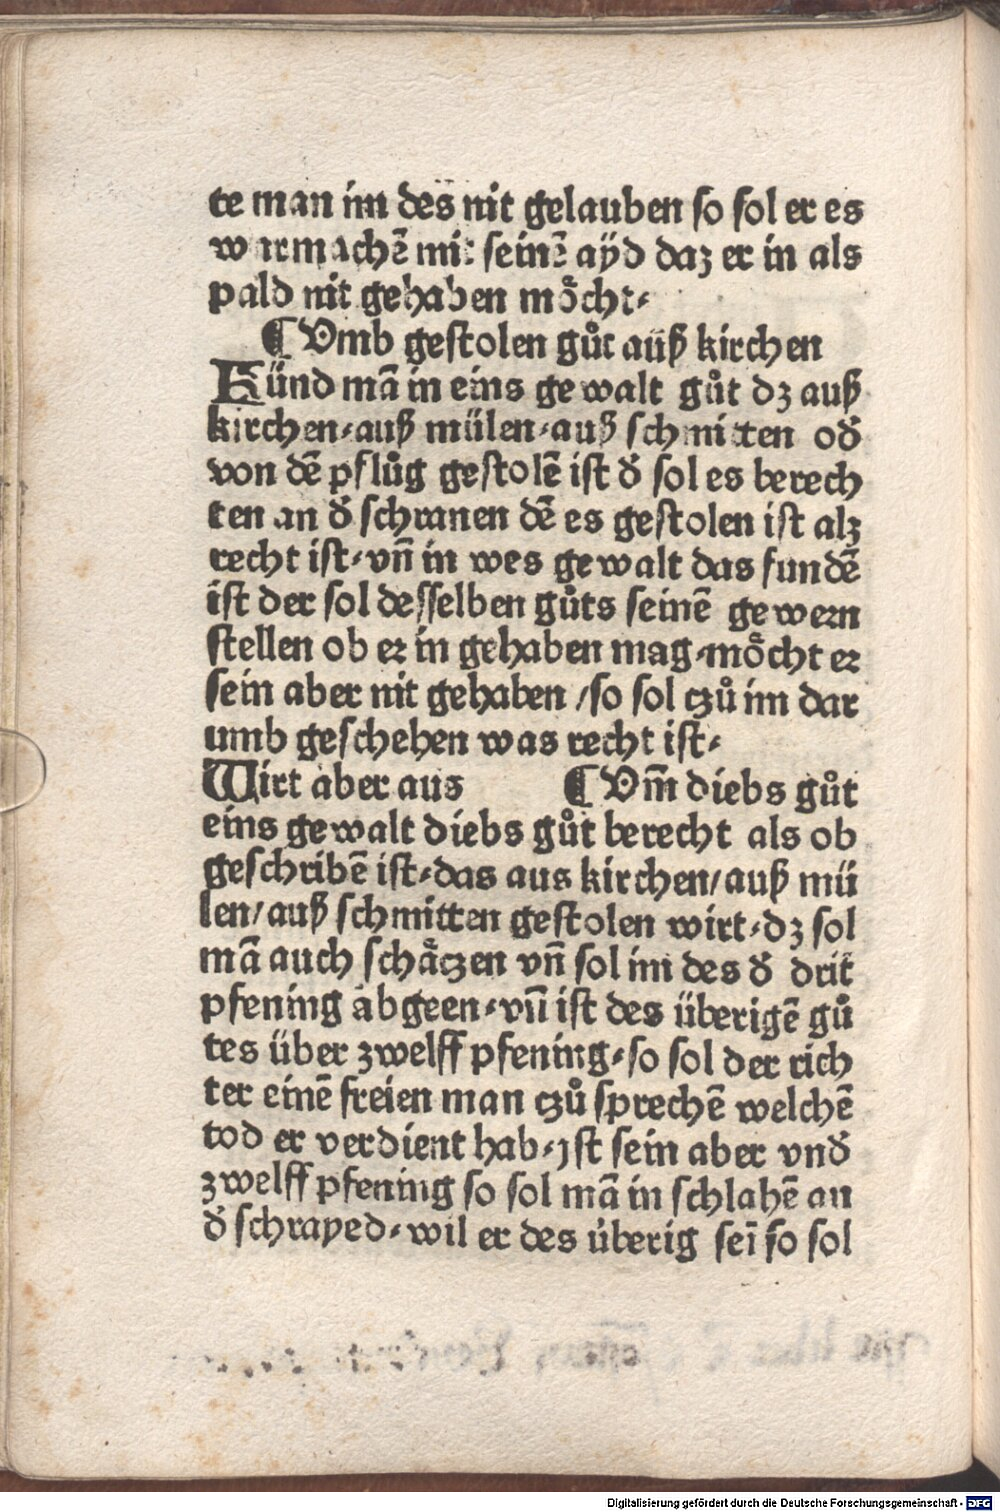 te man im des nit gelauben so sol er es
warmachē mit seinē aÿd daz er in als
pald nit gehaben moͤcht⸗
¶ Vmb gestolen gůt auß kirchen
Fünd mā in eins gewalt gůt dz auß
kirchen⸗auß mülen⸗auß schmitten oð
von dē pflůg gestolē ist ð sol es berech
ten an ð schranen dē es gestolen ist alz
recht ist⸗vn̄ in wes gewalt das fundē
ist der sol desselben gůts seinē gewern
stellen ob er in gehaben mag⸗moͤcht er
sein aber nit gehaben /so sol czů im dar
umb geschehen was recht ist⸗
Wirt aber aus ¶ Vm̄ diebs gůt
eins gewalt diebs gůt berecht als ob
geschribē ist⸗das aus kirchen/auß mü
len/auß schmitten gestolen wirt⸗dz sol
mā auch schaͤczen vn̄ sol im des ð drit
pfening abgeen⸗vn̄ ist des überigē gů
tes über zwelff pfening⸗so sol der rich
ter einē freien man czů sprechē welchē
tod er verdient hab⸗jst sein aber vnð
zwelff pfening so sol mā in schlahē an
ð schrayed⸗wil er des überig seī so sol
Digitalisierung gefördert durch die Deutsche Forschungsgemeinschaft - DFG